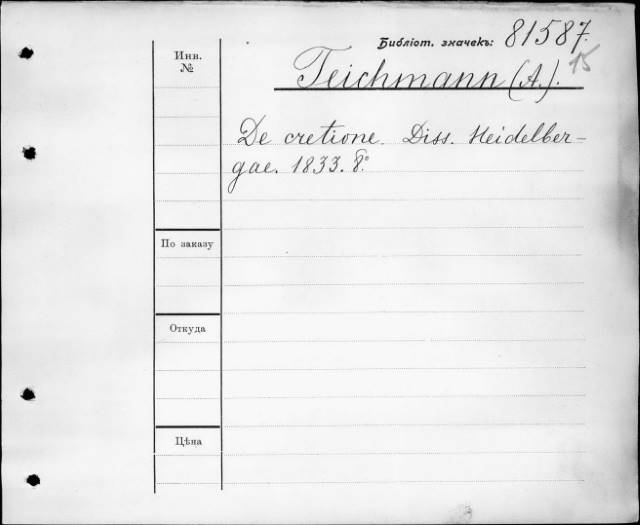 Библіот. значекъ: 81587.
15
Инв.
№
Teichmann (A.).
De cretione. Diss. Heidelber-
gae. 1833. 8°.
По заказу
Откуда
Цѣна